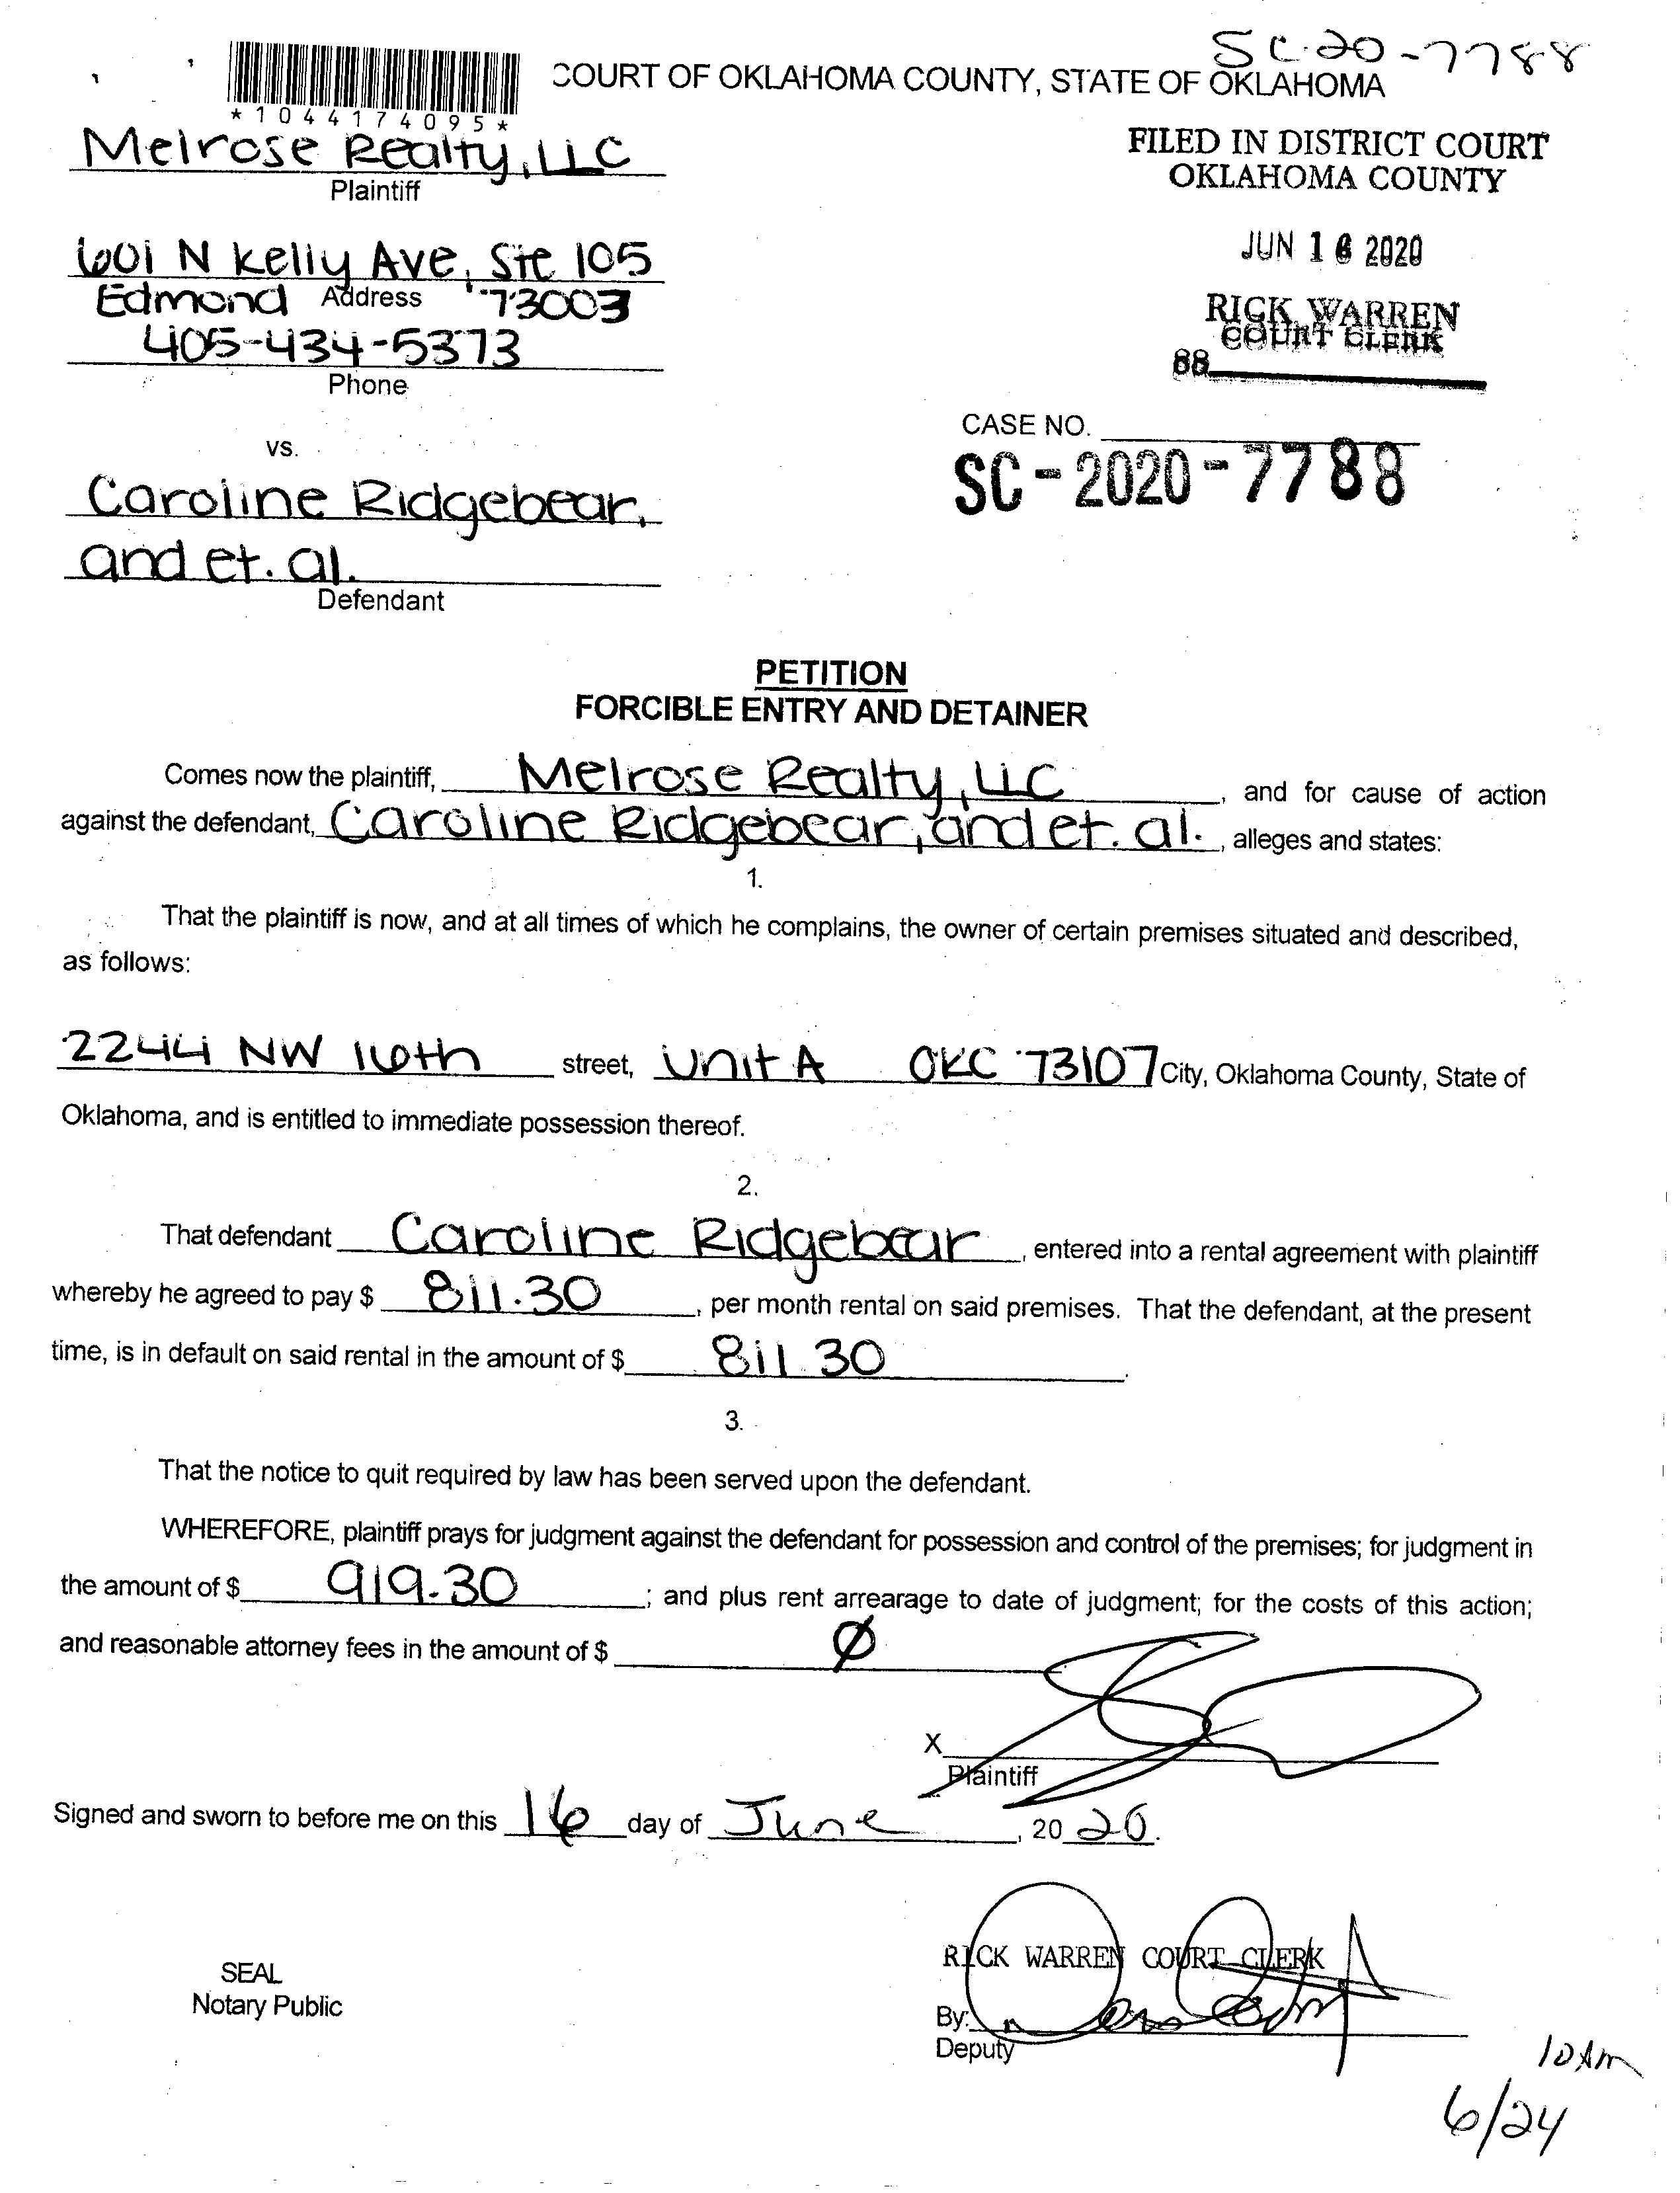 SC-20-7788
COURT OF OKLAHOMA COUNTY, STATE OF OKLAHOMA
*1044174095*
Melrose Realty, LLC
Plaintiff
FILED IN DISTRICT COURT
OKLAHOMA COUNTY
601 N Kelly Ave, Ste 105
Address
Edmond 73003
JUN 16 2020
405-434-5373
Phone
RICK WARREN
COURT CLERK
88
CASE NO.
SC-2020-7788
vs.
Caroline Ridgebear,
and et. al.
Defendant
PETITION
FORCIBLE ENTRY AND DETAINER
Comes now the plaintiff, Melrose Realty, LLC, and for cause of action
against the defendant, Caroline Ridgebear, and et. al., alleges and states:
1.
That the plaintiff is now, and at all times of which he complains, the owner of certain premises situated and described,
as follows:
2244 NW 16th street, Unit A OKC 73107 City, Oklahoma County, State of
Oklahoma, and is entitled to immediate possession thereof.
2.
That defendant Caroline Ridgebear, entered into a rental agreement with plaintiff
whereby he agreed to pay $ 811.30, per month rental on said premises. That the defendant, at the present
time, is in default on said rental in the amount of $ 811.30.
3.
That the notice to quit required by law has been served upon the defendant.
WHEREFORE, plaintiff prays for judgment against the defendant for possession and control of the premises; for judgment in
the amount of $ 919.30; and plus rent arrearage to date of judgment; for the costs of this action;
and reasonable attorney fees in the amount of $ Ø
X
Plaintiff
Signed and sworn to before me on this 16 day of June, 2020.
RICK WARREN COURT CLERK
SEAL
Notary Public
By:
Deputy
10 AM
6/24